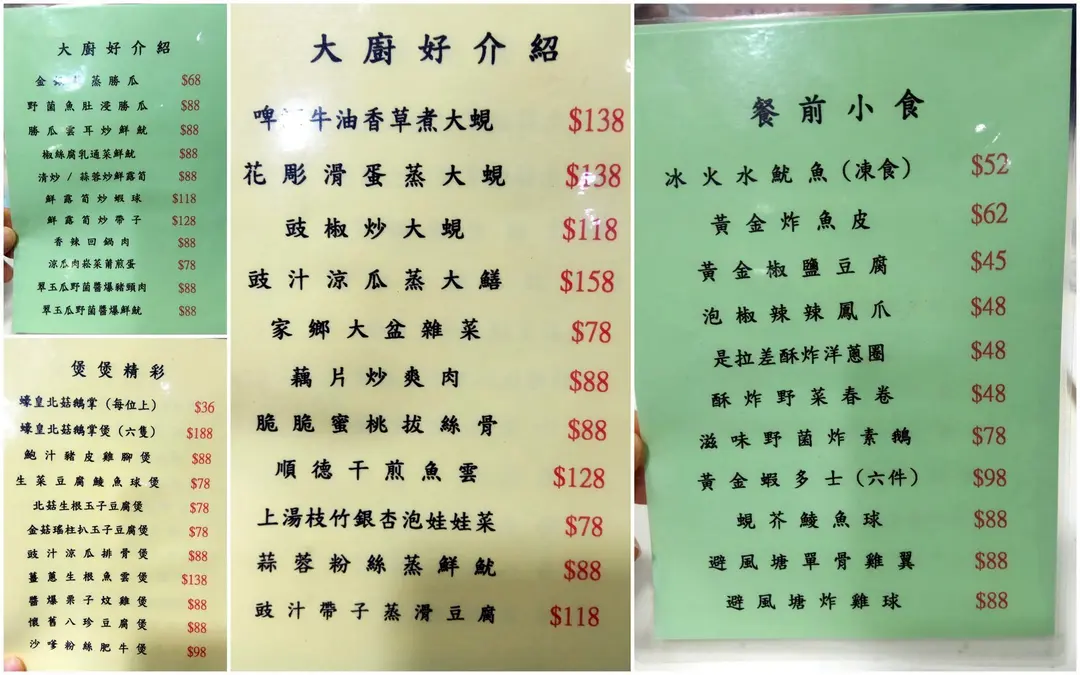 大廚好介紹
金 蒸勝瓜 $68
野菌魚肚浸勝瓜 $88
勝瓜雲耳炒鮮魷 $88
椒絲腐乳通菜鮮魷 $88
清炒/蒜蓉炒鮮露筍 $88
鮮露筍炒蝦球 $118
鮮露筍炒帶子 $128
香辣回鍋肉 $88
涼瓜肉崧菜莆煎蛋 $78
翠玉瓜野菌醬爆豬頸肉 $88
翠玉瓜野菌醬爆鮮魷 $88
煲煲精彩
蠔皇北菇鵝掌(每位上) $36
蠔皇北菇鵝掌煲(六隻) $188
鮑汁豬皮雞腳煲 $88
生菜豆腐鯪魚球煲 $78
北菇生根玉子豆腐煲 $78
金菇瑤柱扒玉子豆腐煲 $78
豉汁涼瓜排骨煲 $88
薑蔥生根魚雲煲 $138
醬爆栗子炆雞煲 $88
懷舊八珍豆腐煲 $88
沙嗲粉絲肥牛煲 $98
大廚好介紹
啤 牛油香草煮大蜆 $138
花彫滑蛋蒸大蜆 $138
豉椒炒大蜆 $118
豉汁涼瓜蒸大鱔 $158
家鄉大盆雜菜 $78
藕片炒爽肉 $88
脆脆蜜桃拔絲骨 $88
順德干煎魚雲 $128
上湯枝竹銀杏泡娃娃菜 $78
蒜蓉粉絲蒸鮮魷 $88
豉汁帶子蒸滑豆腐 $118
餐前小食
冰火水魷魚(凍食) $52
黃金炸魚皮 $62
黃金椒鹽豆腐 $45
泡椒辣辣鳳爪 $48
是拉差酥炸洋蔥圈 $48
酥炸野菜春卷 $48
滋味野菌炸素鵝 $78
黃金蝦多士(六件) $98
蜆芥鯪魚球 $88
避風塘單骨雞翼 $88
避風塘炸雞球 $88